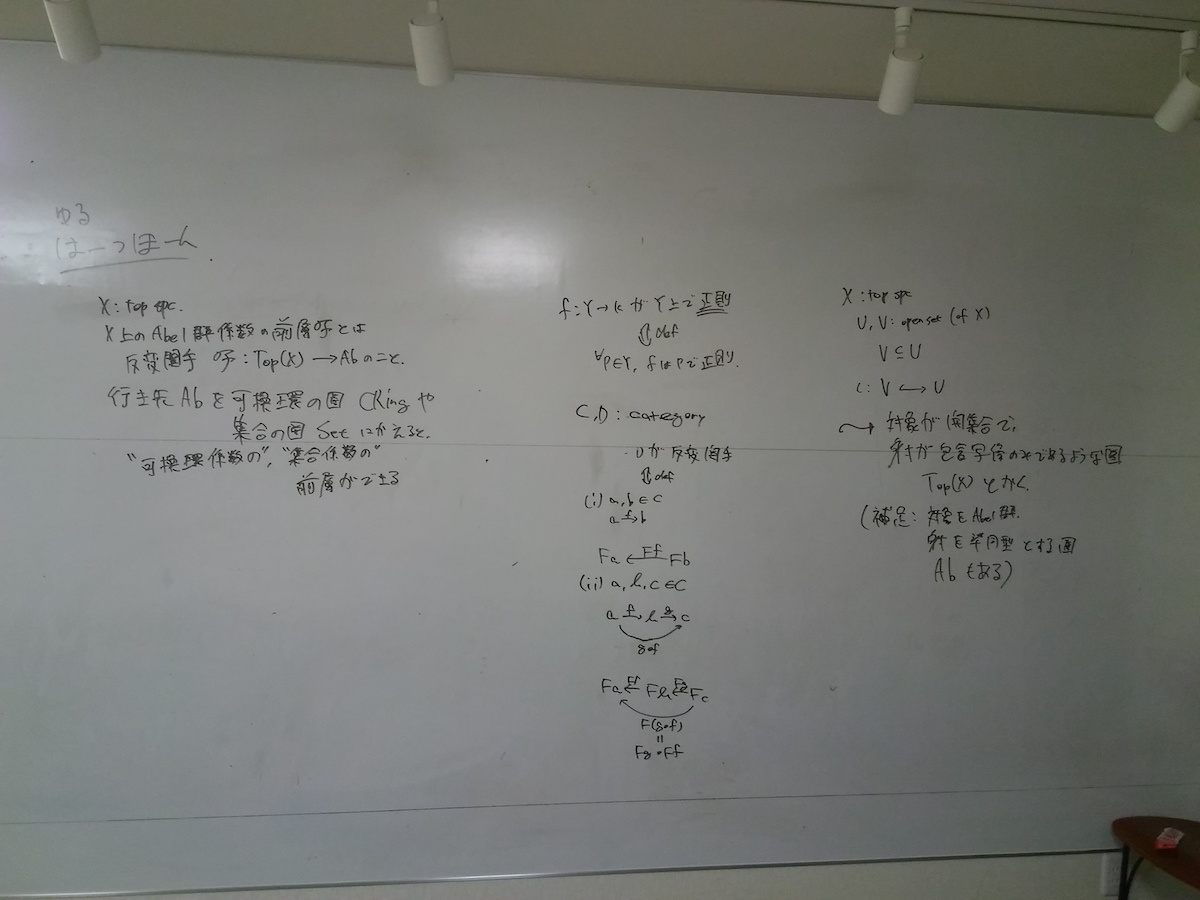 ゆる
はーつほーん
X : top spc.
X上のAbel群係数の前層ℱとは
反変関手 ℱ : Top(X) → Abのこと.
行き先Abを可換環の圏 CRingや
集合の圏 Setにかえると,
"可換環係数の", "集合係数の"
前層ができる
f : Y → k が Y上で正則
⇕def
∀P∈Y, fはPで正則.
C, D : category
が反変関手
⇕def
(i) a, b ∈ C
a →f b
Fa ←Ff Fb
(ii) a, b, c ∈ C
a →f b →g c
g∘f
Fa ←Ff Fb ←Fg Fc
F(g∘f)
=
Fg∘Ff
X : top spc
U, V : open set (of X)
V ⊆ U
ι : V ↪ U
⤳ 対象が開集合で,
射が包含写像のみであるような圏
Top(X) とかく.
(補足: 対象をAbel群,
射を準同型とする圏
Abもある)